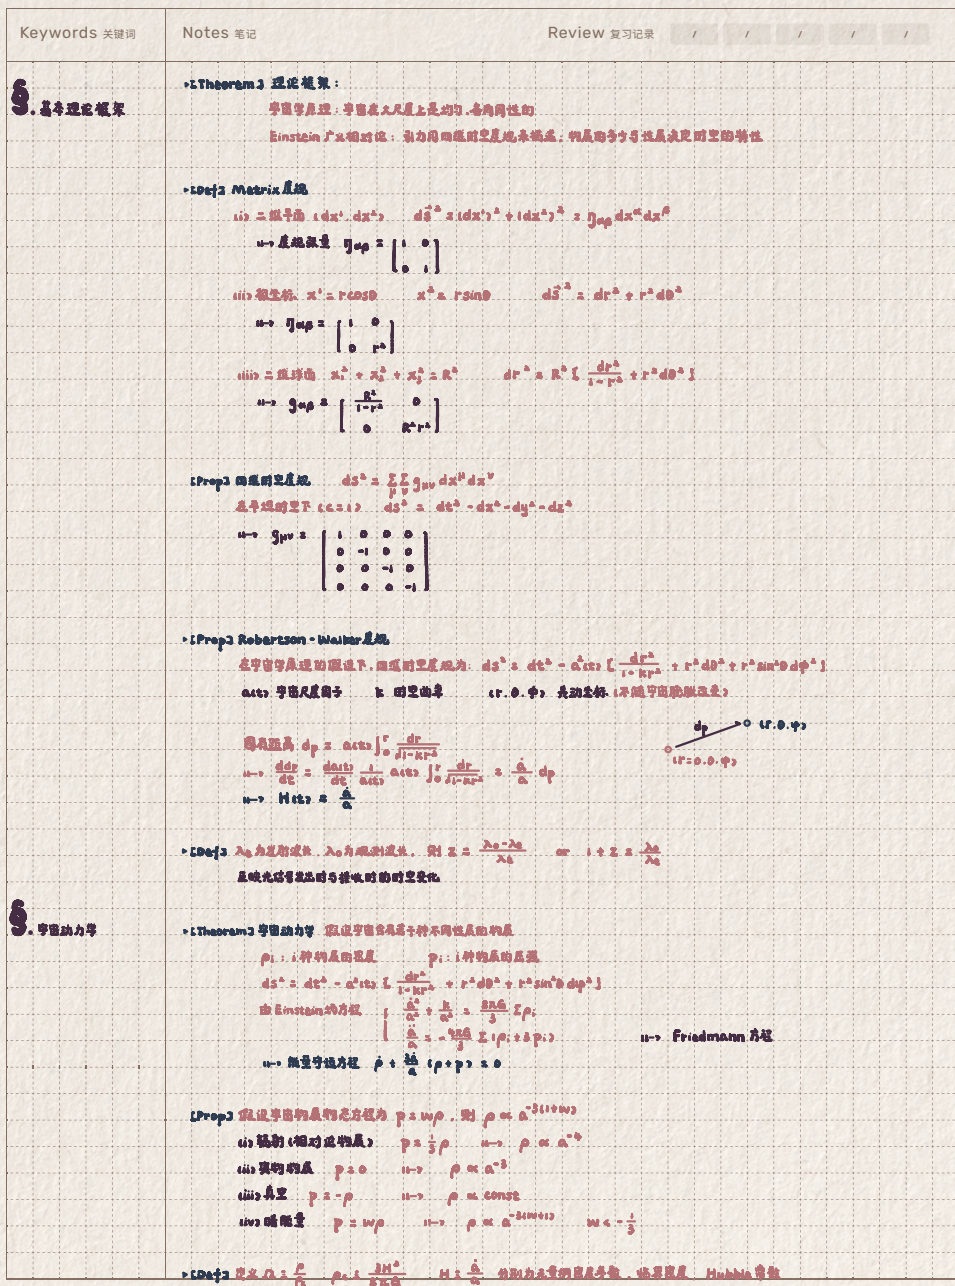 Keywords 关键词
Notes 笔记
Review 复习记录 / / / / /
§. 基本理论框架
▸[Theorem] 理论框架：
宇宙学原理：宇宙在大尺度上是均匀.各向同性的
Einstein 广义相对论：引力用四维时空度规来描述；物质的多少与性质决定时空的特性
▸[Def] Matrix度规
(i) 二维平面 (dx¹.dx²) ds² = (dx¹)² + (dx²)² = ηαβ dx^α dx^β
⇒ 度规张量 ηαβ = [ 1 0
0 1 ]
(ii) 极坐标 x¹ = rcosθ x² = rsinθ ds² = dr² + r²dθ²
⇒ ηαβ = [ 1 0
0 r² ]
(iii) 二维球面 x₁² + x₂² + x₃² = R² dr² = R² [ dr²/(1-r²) + r²dθ² ]
⇒ gαβ = [ R²/(1-r²) 0
0 R²r² ]
[Prop] 四维时空度规 ds² = Σμ Σν gμν dx^μ dx^ν
在平坦时空下 (c=1) ds² = dt² - dx² - dy² - dz²
⇒ gμν = [ 1 0 0 0
0 -1 0 0
0 0 -1 0
0 0 0 -1 ]
▸[Prop] Robertson - Walker度规
在宇宙学原理的假设下.四维时空度规为: ds² = dt² - a²(t) [ dr²/(1-kr²) + r²dθ² + r²sin²θdφ² ]
a(t) 宇宙尺度因子 k 时空曲率 (r.θ.φ) 共动坐标 (不随宇宙膨胀改变)
dp (r.θ.φ)
(r=0.θ.φ)
固有距离 dp = a(t)∫₀ʳ dr/√(1-kr²)
⇒ ddp/dt = da(t)/dt 1/a(t) a(t) ∫₀ʳ dr/√(1-kr²) = ȧ/a dp
⇒ H(t) = ȧ/a
▸[Def] λe为发射波长.λo为观测波长. 则 z = (λo-λe)/λe or 1+z = λo/λe
反映光信号发出时与接收时的时空变化
§. 宇宙动力学
▸[Theorem] 宇宙动力学 假设宇宙含有若干种不同性质的物质
ρi : i 种物质的密度 pi : i 种物质的压强
ds² = dt² - a²(t) [ dr²/(1-kr²) + r²dθ² + r²sin²θdφ² ]
由Einstein场方程 { ȧ²/a² + k/a² = 8πG/3 Σρi
ä/a = -4πG/3 Σ(ρi+3pi) ⇒ Friedmann 方程
⇒ 能量守恒方程 ρ̇ + 3ȧ/a (ρ+p) = 0
[Prop] 假设宇宙物质物态方程为 p = wρ . 则 ρ ∝ a^-3(1+w)
(i) 辐射(相对论物质) p = 1/3 ρ ⇒ ρ ∝ a^-4
(ii) 实物物质 p = 0 ⇒ ρ ∝ a^-3
(iii) 真空 p = -ρ ⇒ ρ ∝ const
(iv) 暗能量 p = wρ ⇒ ρ ∝ a^-3(w+1) w < -1/3
▸[Def] 定义 Ω = ρ/ρc ρc = 3H²/8πG H = ȧ/a 分别为无量纲密度参数 . 临界密度 . Hubble 常数